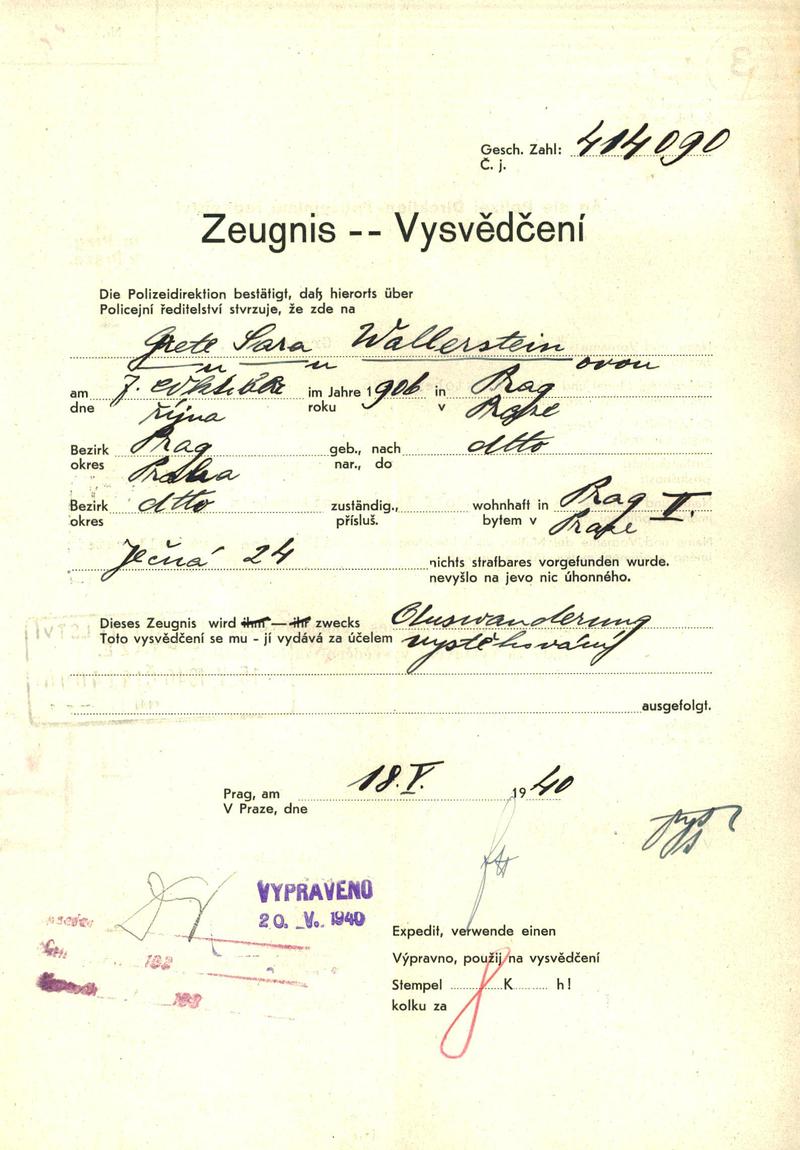 Gesch. Zahl: 414090
Č. j.
Zeugnis -- Vysvědčení
Die Polizeidirektion bestätigt, daß hierorts über
Policejní ředitelství stvrzuje, že zde na
Grete Sara Wallerstein
ovou
am 7. Oktober im Jahre 1906 in Prag
dne října roku v Praze
Bezirk Prag geb., nach dtto
okres Praha nar., do
Bezirk dtto zuständig., wohnhaft in Prag II.
okres přísluš. bytem v Praze
Ječná 24 nichts strafbares vorgefunden wurde.
nevyšlo na jevo nic úhonného.
Dieses Zeugnis wird ihm — ihr zwecks Auswanderung
Toto vysvědčení se mu - jí vydává za účelem vystěhování
ausgefolgt.
Prag, am 18. V. 1940
V Praze, dne
VYPRAVENO
20. V. 1940
Expedit, verwende einen
Výpravno, použij na vysvědčení
Stempel K h!
kolku za 8